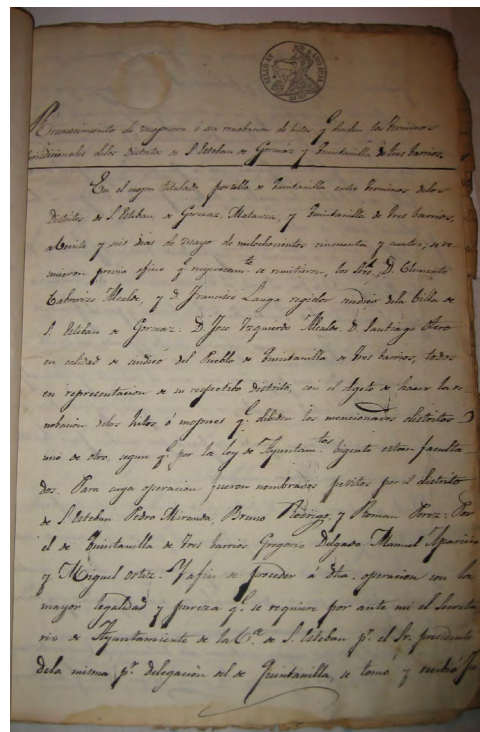 Reconocimiento de mojonera ó sea renobacion de hitos q.e dividen los terminos
jurisdicionales delos Distritos de S. Esteban de Gormaz y Quintanilla de tres barrios.
En el mojon titulado portilla de Quintanilla entre terminos delos
Distritos de S. Esteban de Gormaz, Matanza, y Quintanilla de tres barrios,
abeinte y seis dias de mayo de milochocientos cincuenta y cuatro; se re
unieron previo oficio q.e reciprocam.te se remitieron, los Sres. D. Clemente
Cabrerizo Alcalde, y D. Francisco Lauga regidor sindico dela billa de
S. Esteban de Gormaz: D. Jose Izquierdo Alcalde. D. Santiago Otero
en calidad de sindico del Pueblo de Quintanilla de tres barrios, todos
en representacion de su respectibo distrito, con el objeto de hacer la re
nobacion delos hitos ó mojones q.e dibiden los mencionados distritos
uno de otro, segun q.e por la ley de Ayuntam.tos bigente estan faculta
dos. Para cuya operacion fueron nombrados peritos por el distrito
de S. Esteban Pedro Miranda, Bruno Rodrigo, y Roman Perez: Por
el de Quintanilla de tres barrios Gregorio Delgado Manuel Aparicio
y Miguel Ortiz. Y afin de proceder á dha. operacion con la
mayor legalidad y pureza q.e se requiere por ante mi el Secreta
rio de Ayuntamiento de la V.a de S. Esteban p.r el Sr. presidente
dela misma, p.r delegacion del de Quintanilla, se tomó y recibió Ju